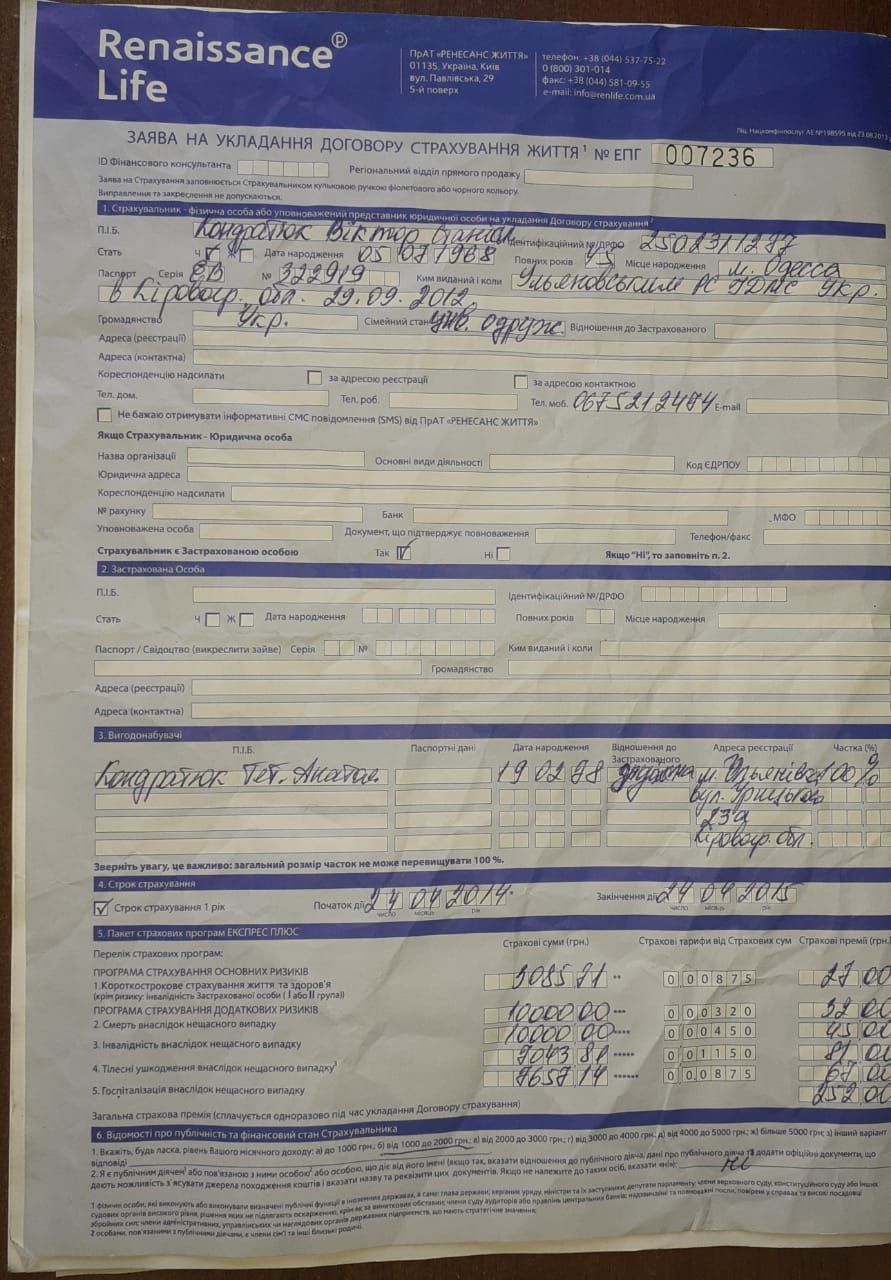 Renaissance Life
ПрАТ «РЕНЕСАНС ЖИТТЯ»
01135, Україна, Київ
вул. Павлівська, 29
5-й поверх
телефон: +38 (044) 537-75-22
0 (800) 301-014
факс: +38 (044) 581-09-55
e-mail: info@renlife.com.ua
Ліц. Нацкомфінпослуг АЕ №198595 від 23.08.2013
ЗАЯВА НА УКЛАДАННЯ ДОГОВОРУ СТРАХУВАННЯ ЖИТТЯ¹ № ЕПГ 007236
ID Фінансового консультанта Регіональний відділ прямого продажу
Заява на Страхування заповнюється Страхувальником кульковою ручкою фіолетового або чорного кольору.
Виправлення та закреслення не допускаються.
1. Страхувальник - фізична особа або уповноважений представник юридичної особи на укладання Договору страхування²
П.І.Б. Кондратюк Віктор Ідентифікаційний №/ДРФО
Стать Ч Ж Дата народження 05 07 1968 Повних років 45 Місце народження м. Одесса
Паспорт Серія ЕВ № 322919 Ким виданий і коли Ульяновським РС УДМС Укр.
в Кіровогр. обл. 29.09.2012
Громадянство Укр. Сімейний стан цив. одруж. Відношення до Застрахованого
Адреса (реєстрації)
Адреса (контактна)
Кореспонденцію надсилати за адресою реєстрації за адресою контактною
Тел. дом. Тел. роб. Тел. моб. 0675212494 E-mail
Не бажаю отримувати інформативні СМС повідомлення (SMS) від ПрАТ «РЕНЕСАНС ЖИТТЯ»
Якщо Страхувальник - Юридична особа
Назва організації Основні види діяльності Код ЄДРПОУ
Юридична адреса
Кореспонденцію надсилати
№ рахунку Банк МФО
Уповноважена особа Документ, що підтверджує повноваження Телефон/факс
Страхувальник є Застрахованою особою Так Ні Якщо "Ні", то заповніть п. 2.
2. Застрахована Особа
П.І.Б. Ідентифікаційний №/ДРФО
Стать Ч Ж Дата народження Повних років Місце народження
Паспорт / Свідоцтво (викреслити зайве) Серія № Ким виданий і коли
Громадянство
Адреса (реєстрації)
Адреса (контактна)
3. Вигодонабувачі
П.І.Б. Паспортні дані Дата народження Відношення до Застрахованого Адреса реєстрації Частка (%)
Кондратюк Тет. Анатол. 19 02 м. Ульянівка 100%
вул. Урицького
23а
Кіровогр. обл.
Зверніть увагу, це важливо: загальний розмір часток не може перевищувати 100 %.
4. Строк страхування
Строк страхування 1 рік Початок дії 24 04 2014 Закінчення дії 24 04 2015
число місяць рік число місяць рік
5. Пакет страхових програм ЕКСПРЕС ПЛЮС
Перелік страхових програм: Страхові суми (грн.) Страхові тарифи від Страхових сум Страхові премії (грн.)
ПРОГРАМА СТРАХУВАННЯ ОСНОВНИХ РИЗИКІВ
1.Короткострокове страхування життя та здоров'я 3085 71 ** 0 0 0 8 7 5 27 00
(крім ризику: інвалідність Застрахованої особи ( І або ІІ група))
ПРОГРАМА СТРАХУВАННЯ ДОДАТКОВИХ РИЗИКІВ
2. Смерть внаслідок нещасного випадку 10000 00 *** 0 0 0 3 2 0 32 00
3. Інвалідність внаслідок нещасного випадку 10000 00 **** 0 0 0 4 5 0 45 00
4. Тілесні ушкодження внаслідок нещасного випадку³ 7043 81 ***** 0 0 1 1 5 0 81 00
5. Госпіталізація внаслідок нещасного випадку 7657 14 ****** 0 0 0 8 7 5 67 00
Загальна страхова премія (сплачується одноразово під час укладання Договору страхування) 252 00
6. Відомості про публічність та фінансовий стан Страхувальника
1. Вкажіть, будь ласка, рівень Вашого місячного доходу: а) до 1000 грн.; б) від 1000 до 2000 грн.; в) від 2000 до 3000 грн.; г) від 3000 до 4000 грн.; д) від 4000 до 5000 грн.; ж) більше 5000 грн.; з) інший варіант
відповіді
2. Я є публічним діячем¹ або пов'язаною з ними особою² або особою, що діє від його імені (якщо так, вказати відношення до публічного діяча, дані про публічного діяча та додати офіційні документи, що
дають можливість з'ясувати джерела походження коштів і вказати назву та реквізити цих документів. Якщо не належите до таких осіб, вказати «ні»): ні
2 особами, пов'язаними з публічними діячами, є члени сім'ї та інші близькі родичі.